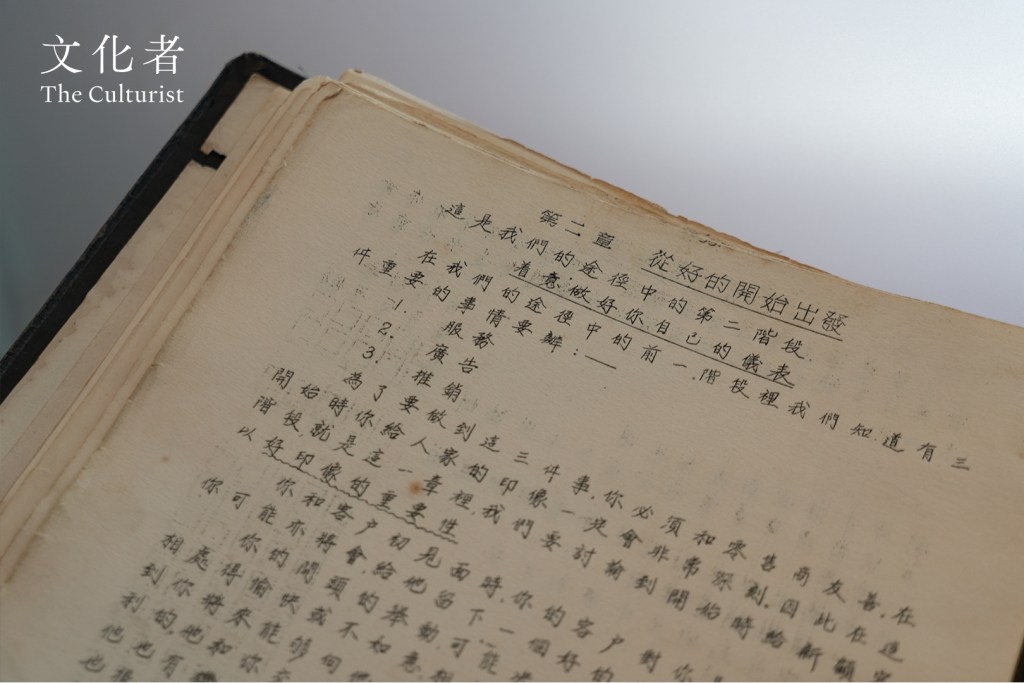 文化者
The Culturist
第二章 從好的開始出發
這是我們的途徑中的第二階段.
着意做好你自己的儀表
在我們的途徑中的前一階段裡我們知道有三
件重要的事情要辦:——
1. 服務
2. 廣告
3. 推銷
為了要做到這三件事,你必須和零售商友善.在
開始時你給人家的印像一定會非常深刻.因此在這
階段就是這一章裡,我們要討論到開始時給新顧客
以好印像的重要性
你和客戶初見面時,你的客戶對你
你可能亦將會給他留下一個好的
你的開頭的舉動可能
相處得愉快或不如意
到你將來能够向他
利的,他和你
他也有機
也